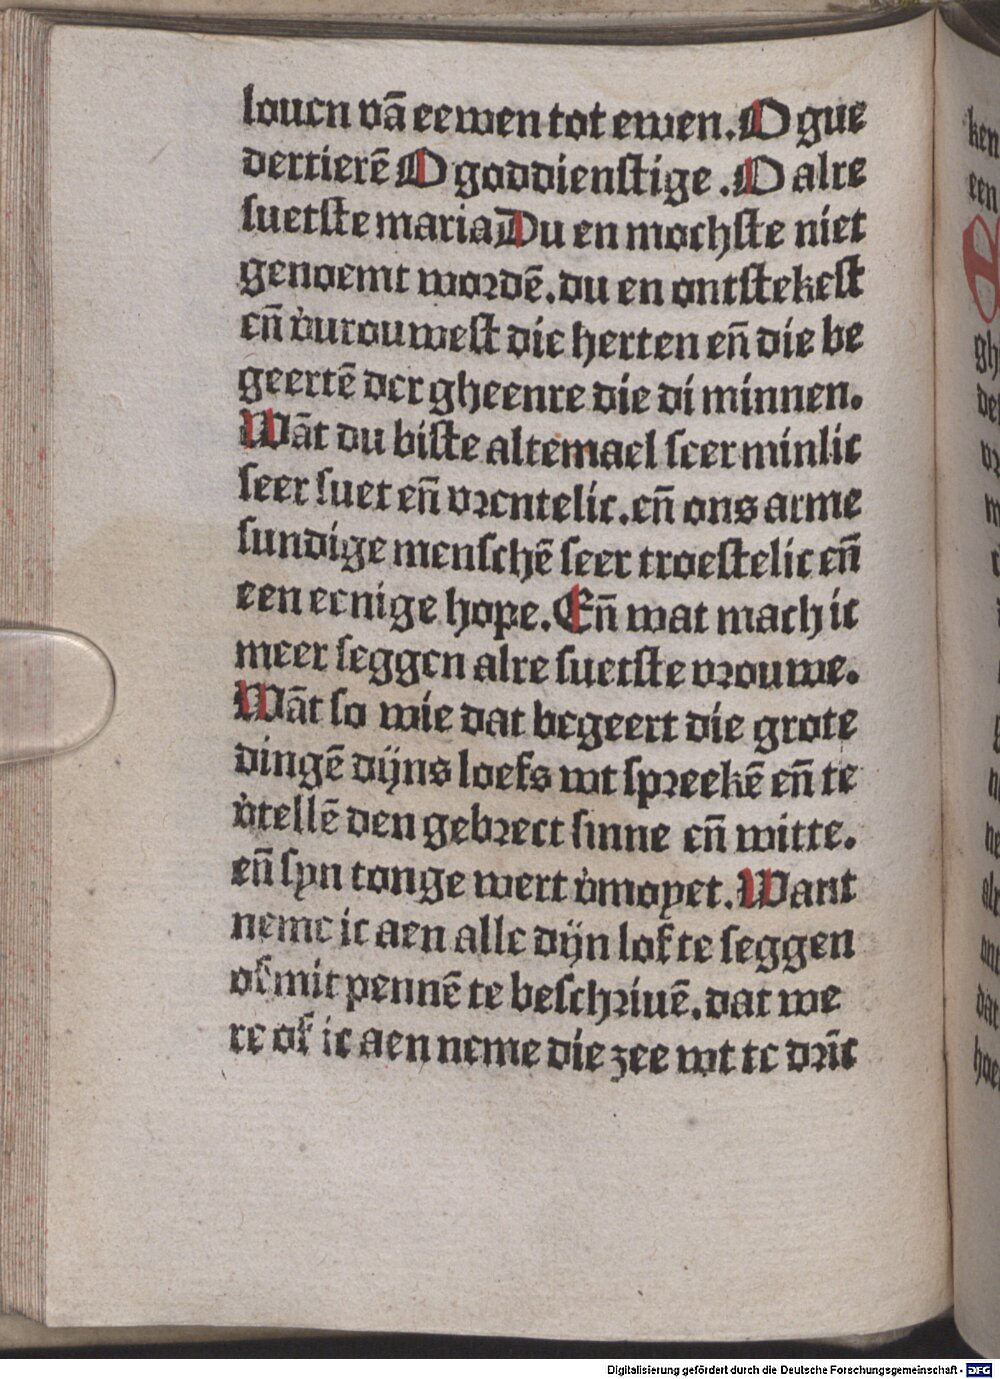 louen vā eewen tot ewen. O gue
dertierē O goddienstige. O alre
suetste maria Du en mochste niet
genoemt wordē. du en ontstekest
eñ v̓urouwest die herten eñ die be
geertē der gheenre die di minnen.
Wāt du biste altemael seer minlic
seer suet eñ vrentelic. eñ ons arme
sundige menschē seer troestelic eñ
een eenige hope. Eñ wat mach ic
meer seggen alre suetste vrouwe.
Wāt so wie dat begeert die grote
dingē dijns loefs wt spreekē eñ te
v̓tellē den gebrect sinne eñ witte.
eñ syn tonge wert v̓moyet. Want
neme ic aen alle dijn lof te seggen
of mit pennē te beschriuē. dat we
re of ic aen neme die zee wt te drīc
Digitalisierung gefördert durch die Deutsche Forschungsgemeinschaft - DFG